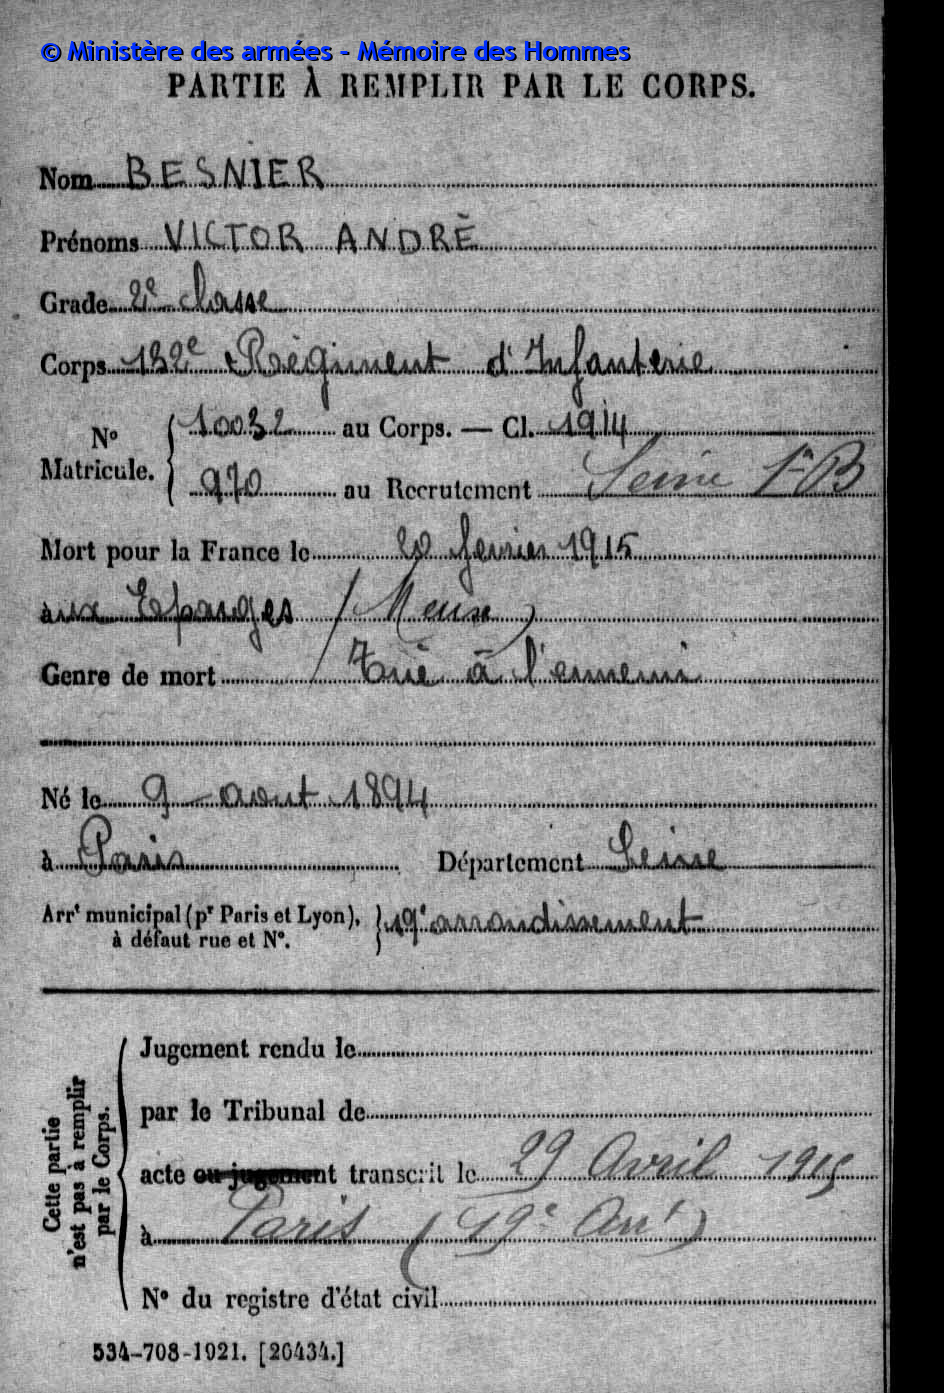 © Ministère des armées - Mémoire des Hommes
PARTIE À REMPLIR PAR LE CORPS.
Nom BESNIER
Prénoms VICTOR ANDRÉ
Grade 2e classe
Corps 132e Régiment d'Infanterie
No Matricule. 10032 au Corps. — Cl. 1914
970 au Recrutement Seine 1er B
Mort pour la France le 20 fevrier 1915
aux Eparges (Meuse)
Genre de mort Tué à l'ennemi
Né le 9 aout 1894
à Paris Département Seine
Arrt municipal (pr Paris et Lyon), à défaut rue et No. 19e arrondissement
Cette partie n'est pas à remplir par le Corps.
Jugement rendu le
par le Tribunal de
acte ou jugement transcrit le 29 Avril 1915
à Paris (19e Arrt)
No du registre d'état civil
534-708-1921. [26434.]